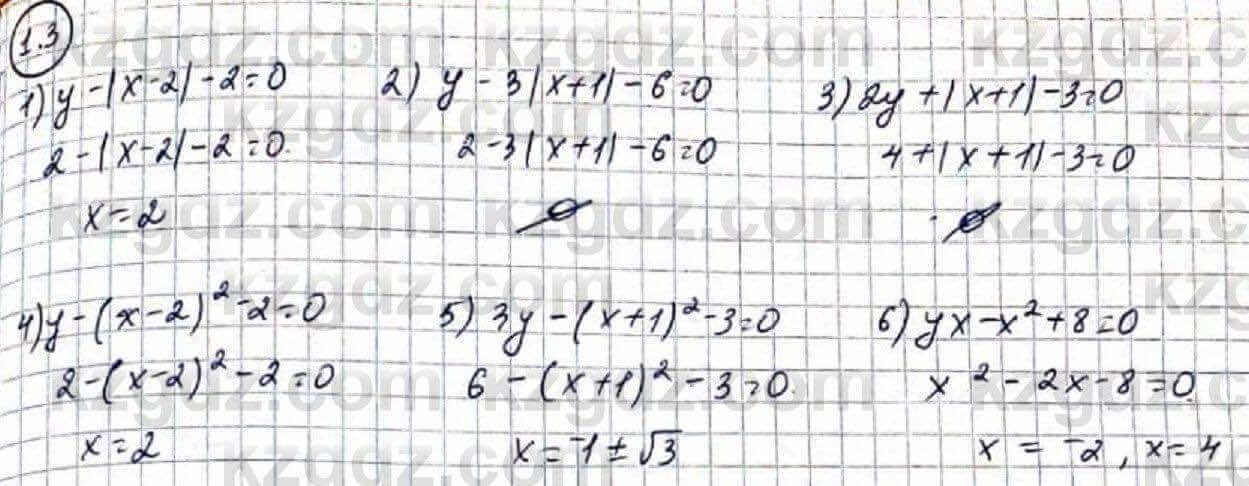 1.3
1) y - |x-2| - 2 = 0
2 - |x-2| - 2 = 0.
x = 2
2) y - 3|x+1| - 6 = 0
2 - 3|x+1| - 6 = 0
∅
3) 2y + |x+1| - 3 = 0
4 + |x+1| - 3 = 0
∅
4) y - (x-2)² - 2 = 0
2 - (x-2)² - 2 = 0
x = 2
5) 3y - (x+1)² - 3 = 0
6 - (x+1)² - 3 = 0.
x = -1 ± √3
6) yx - x² + 8 = 0
x² - 2x - 8 = 0.
x = -2, x = 4
kzgdz.com